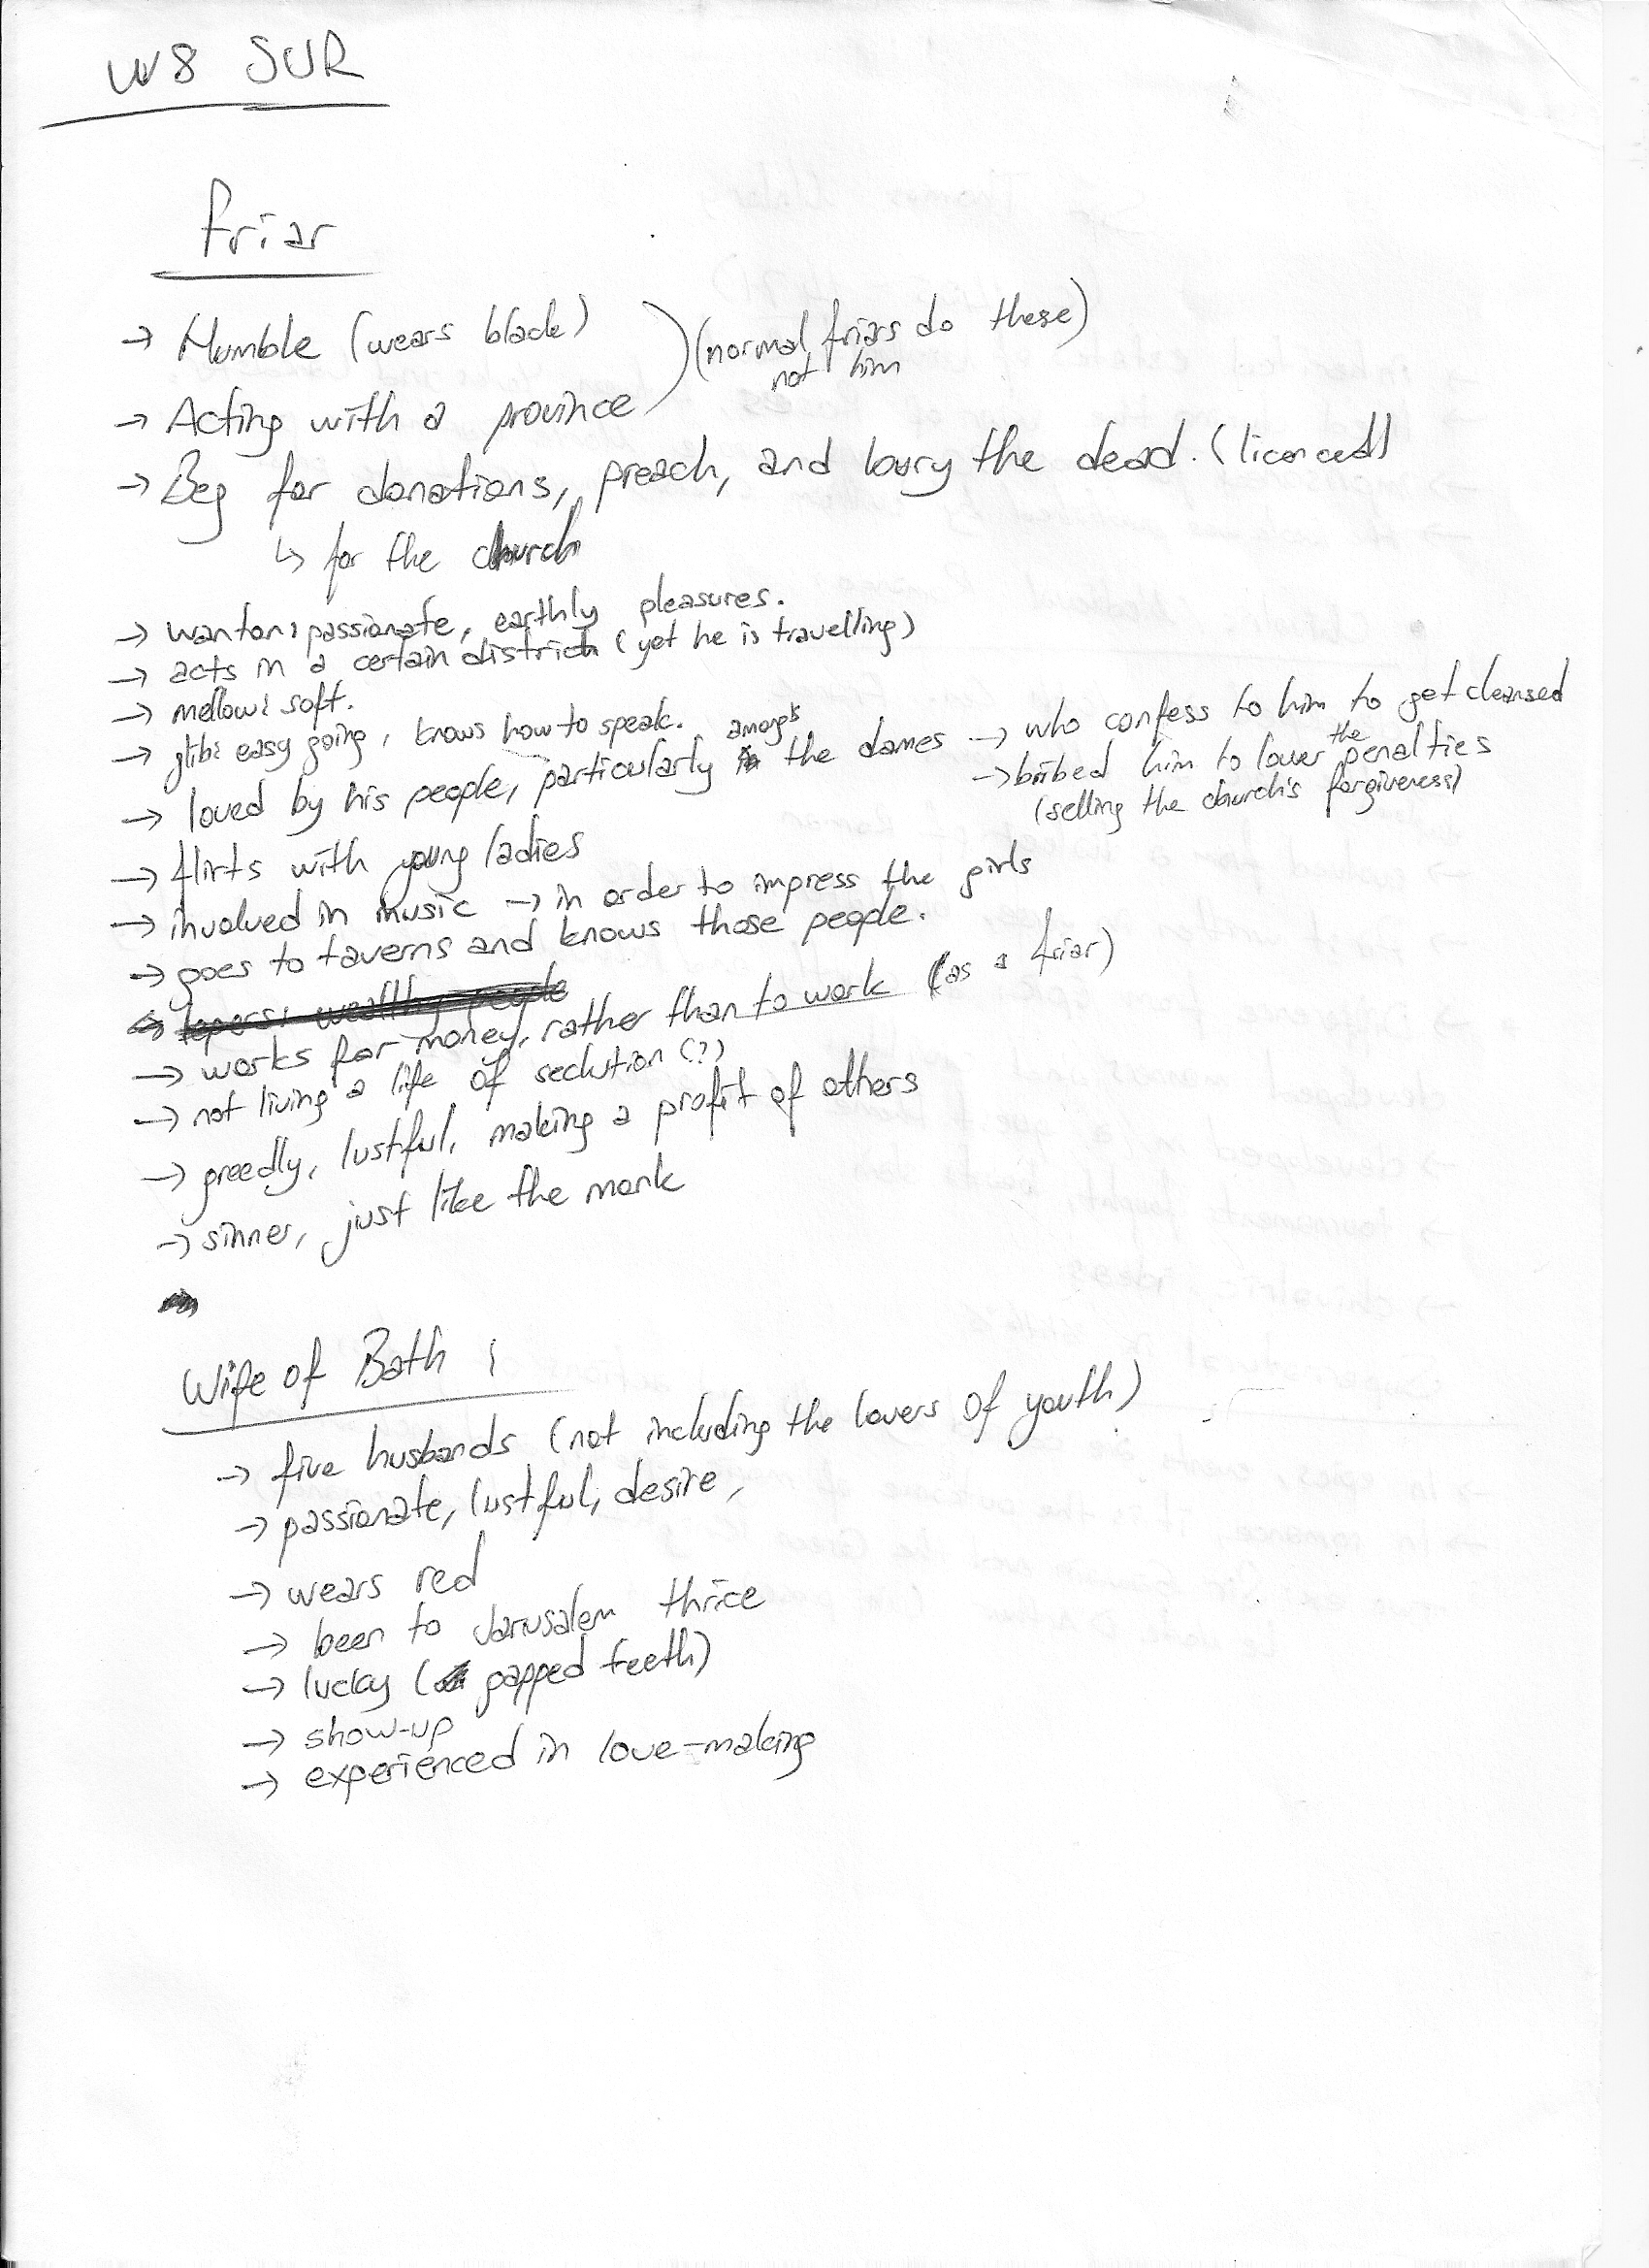 W8 SUR
Friar
→ Humble (wears black)
) (normal friars do these)
not him
→ Acting with a province
→ Beg for donations, preach, and bury the dead. (licenced)
↳ for the church
→ wanton: passionate, earthly pleasures.
→ acts in a certain district (yet he is travelling)
→ mellow: soft.
→ glib: easy going, knows how to speak.
→ loved by his people, particularly amongs the dames → who confess to him to get cleansed
→ bribed him to lower the penalties
(selling the church's forgiveness)
→ flirts with young ladies
→ involved in music → in order to impress the girls
→ goes to taverns and knows those people.
→ lepers: wealthy people
→ works for money, rather than to work (as a friar)
→ not living a life of seclution (?)
→ greedly, lustful, making a profit of others
→ sinner, just like the monk
Wife of Bath :
→ five husbands (not including the lovers of youth)
→ passionate, lustful, desire,
→ wears red
→ been to Jarusalem thrice
→ lucky (gapped teeth)
→ show-up
→ experienced in love-making